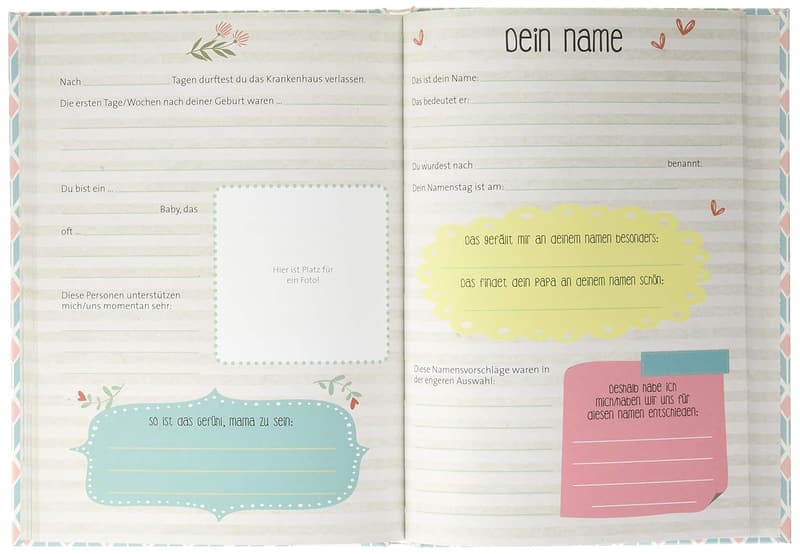 Nach Tagen durftest du das Krankenhaus verlassen.
Die ersten Tage/Wochen nach deiner Geburt waren ...
Du bist ein ...
Baby, das
oft ...
Hier ist Platz für
ein Foto!
Diese Personen unterstützen
mich/uns momentan sehr:
So ist das Gefühl, Mama zu sein:
Dein Name
Das ist dein Name:
Das bedeutet er:
Du wurdest nach benannt.
Dein Namenstag ist am:
Das gefällt mir an deinem Namen besonders:
Das findet dein Papa an deinem Namen schön:
Diese Namensvorschläge waren in
der engeren Auswahl:
Deshalb habe ich
mich/haben wir uns für
diesen Namen entschieden: